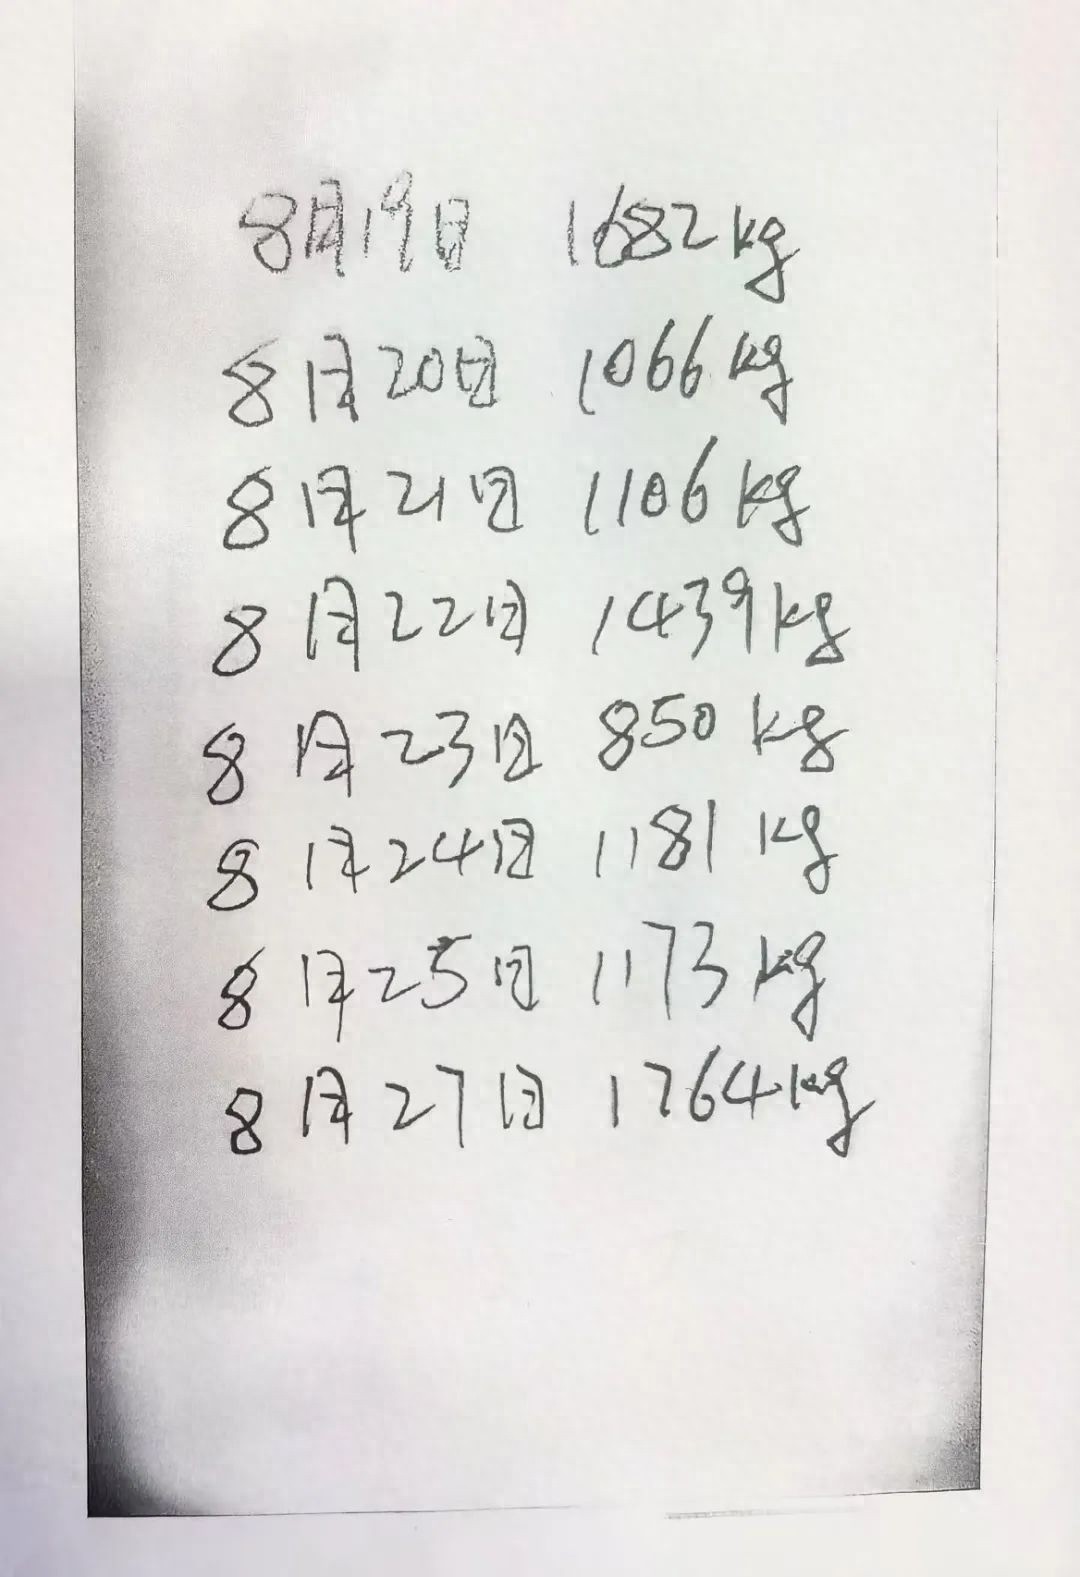 8月19日 1682kg
8月20日 1066kg
8月21日 1106kg
8月22日 1439kg
8月23日 850kg
8月24日 1181kg
8月25日 1173kg
8月27日 1764kg